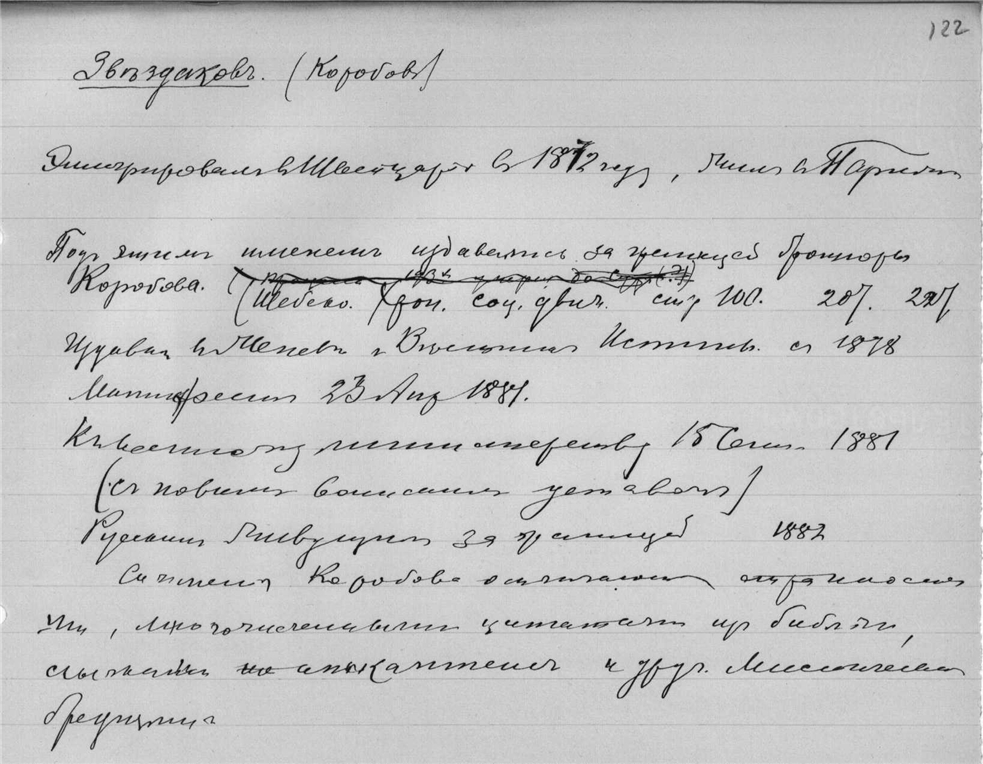 122
Звѣздаковъ. (Коробовъ)
Эмигрировалъ в Швейцарію в 1872 году, жилъ в Париже
Подъ этимъ именемъ издавались за границей брошюры
Коробова.
(Шебеко. Хрон. соц. движ. стр 100. 207. 227
Издавал въ Женеве г. Вѣстникъ Истины. съ 1878
Манифестъ 23 Апр 1881.
Къ военному министерству 15 Сент. 1881
(съ новымъ воинскимъ уставом)
Русским живущим за границей 1882
Сочинения Коробова отличаются странностя
ми, многочисленными цитатами из библии,
ссылками на апокалипсис и друг. мистическими
бреднями